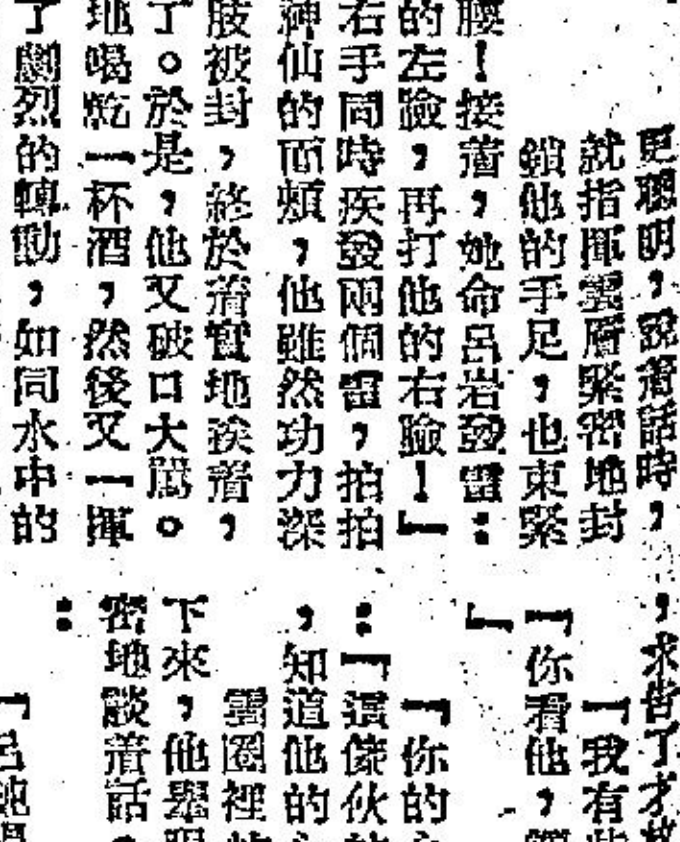 更聰明,說着話時,
就指揮雲層緊密地封
鎖他的手足,也束緊
腰!接着,她命呂岩發雷:
的左臉,再打他的右臉!」
右手同時疾發兩個雷,拍拍
神仙的面頰,他雖然功力深
肢被封,終於着實地挨着,
了。於是,他又破口大罵。
地喝乾一杯酒,然後又一揮
了劇烈的轉動,如同水中的
,求告了才放
「我有些
「你看他,
」
「你的
:「這傢伙的
,知道他的心
雲圈裡
下來,他舉眼
密地談着話
:
「呂純陽